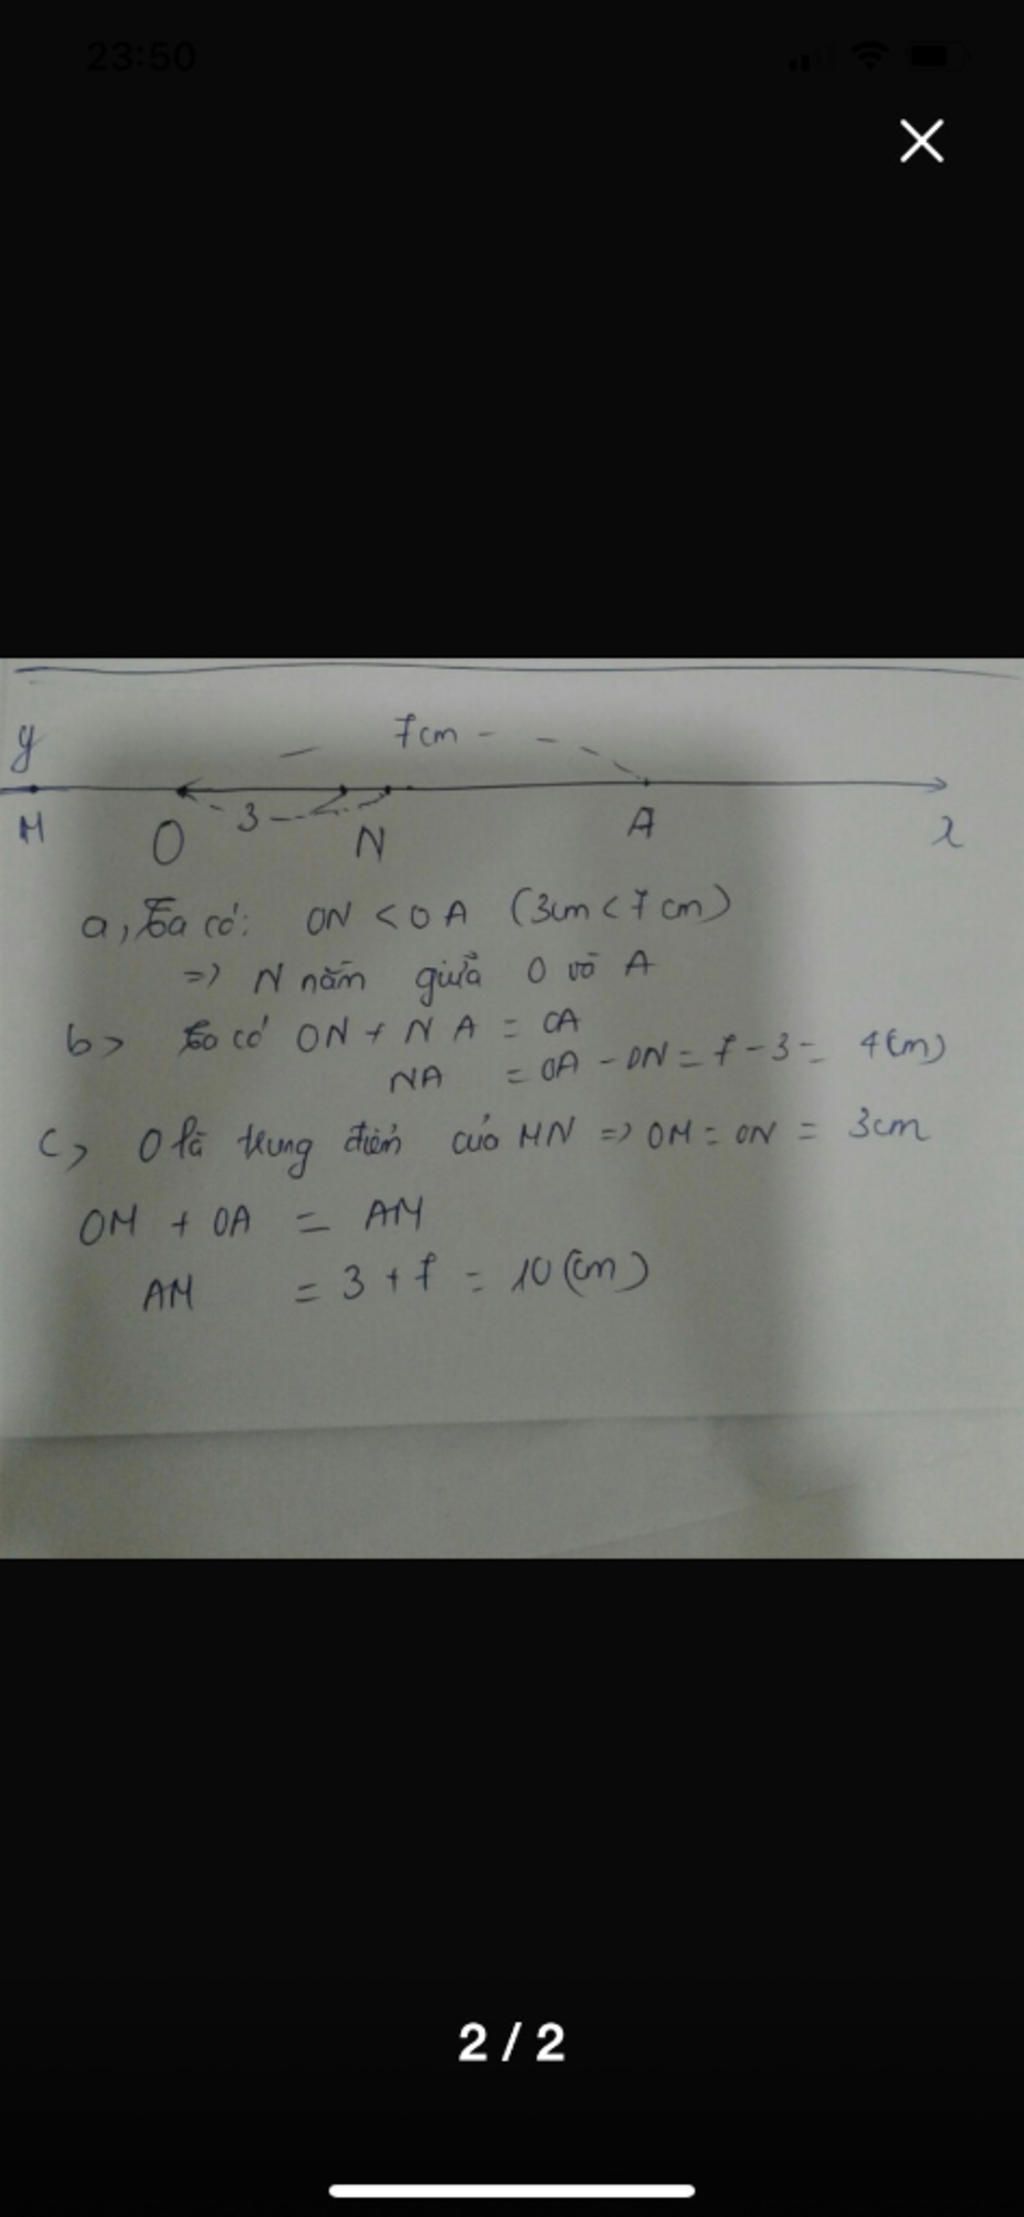 23:50
7cm
y
3
M O N A x
a, Ta có: ON < OA (3cm < 7cm)
=> N nằm giữa O và A
b> Ta có ON + NA = OA
NA = OA - ON = 7 - 3 = 4(cm)
c> O là trung điểm của MN => OM = ON = 3cm
OM + OA = AM
AM = 3 + 7 = 10 (cm)
2 / 2